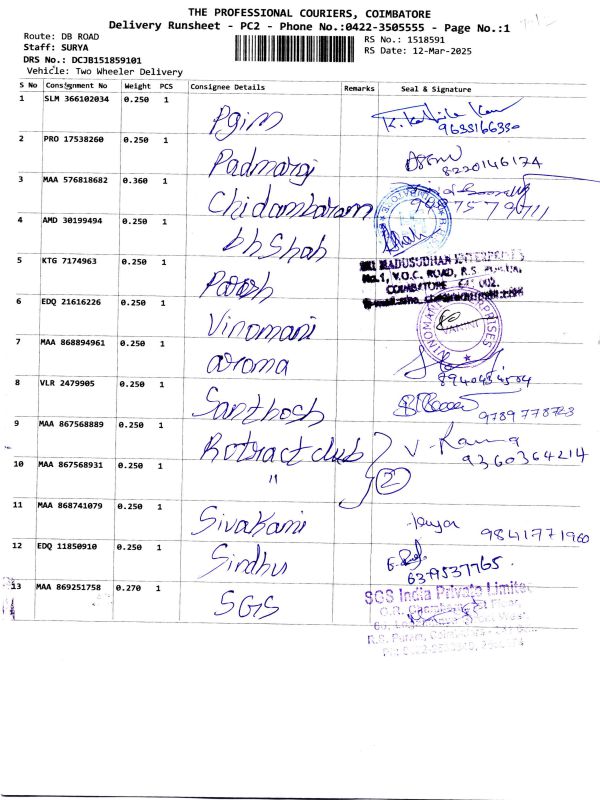 THE PROFESSIONAL COURIERS, COIMBATORE
Delivery Runsheet - PC2 - Phone No.:0422-3505555 - Page No.:1
Route: DB ROAD
RS No.: 1518591
Staff: SURYA
RS Date: 12-Mar-2025
DRS No.: DCJB151859101
Vehicle: Two Wheeler Delivery
S No Consignment No Weight PCS Consignee Details Remarks Seal & Signature
1 SLM 366102034 0.250 1 Pgim
9655166330
2 PRO 17538260 0.250 1 Padmargi
8220146174
3 MAA 576818682 0.360 1 Chidambaram
4 AMD 30199494 0.250 1 bh Shah
5 KTG 7174963 0.250 1
MADUSUDHAN ENTERPRISES
No.1, V.O.C. ROAD, R.S. PURAM,
COIMBATORE 641 002.
6 EDQ 21616226 0.250 1 Vinomani
7 MAA 868894961 0.250 1 aroma
8 VLR 2479905 0.250 1 Santhosh
9789778723
9 MAA 867568889 0.250 1 Rotract club
V-Kanna
9360364214
10 MAA 867568931 0.250 1 "
2
11 MAA 868741079 0.250 1 Sivakami
9841771960
12 EDQ 11850910 0.250 1 Sindhu
6379537765.
13 MAA 869251758 0.270 1 SGS
SGS India Private Limited